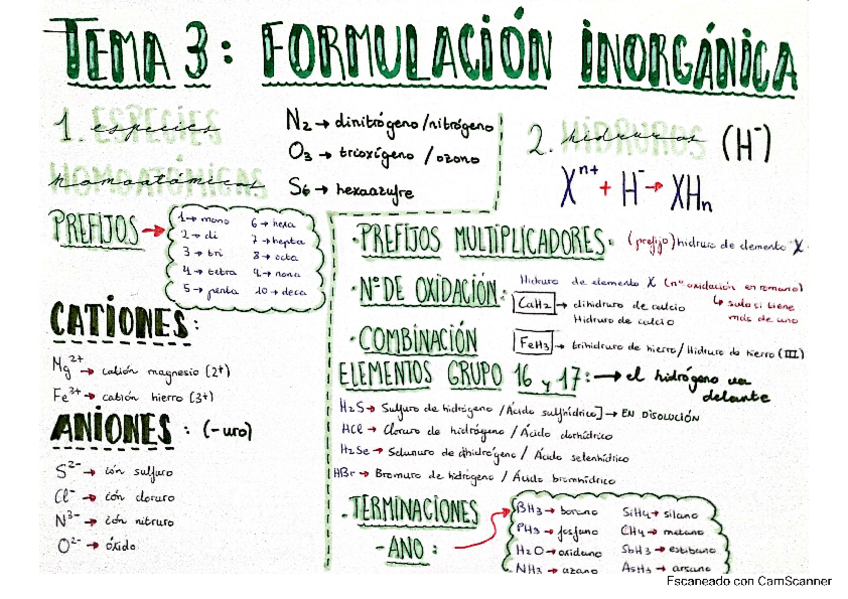 TEMA 3: FORMULACIÓN INORGÁNICA
1. ESPECIES especies
HOMOATÓMICAS homoatómicas
N2 → dinitrógeno/nitrógeno
O3 → trioxígeno / ozono
S6 → hexaazufre
PREFIJOS →
1→ mono 6→ hexa
2→ di 7→ hepta
3→ tri 8→ octa
4→ tetra 9→ nona
5→ penta 10→ deca
CATIONES:
Mg2+ → catión magnesio (2+)
Fe3+ → catión hierro (3+)
ANIONES: (-uro)
S2- → ión sulfuro
Cl- → ión cloruro
N3- → ión nitruro
O2- → óxido
2. HIDRUROS hidruros (H-)
Xn+ + H- → XHn
· PREFIJOS MULTIPLICADORES: (prefijo) hidruro de elemento X
· Nº DE OXIDACIÓN: Hidruro de elemento X (nº oxidación en romano)
↳ solo si tiene más de uno
CaH2 → dihidruro de calcio
Hidruro de calcio
· COMBINACIÓN
FeH3 → trihidruro de hierro/Hidruro de hierro (III)
ELEMENTOS GRUPO 16 y 17: → el hidrógeno va delante
H2S → Sulfuro de hidrógeno / Ácido sulfhídrico] → EN DISOLUCIÓN
HCl → Cloruro de hidrógeno / Ácido clorhídrico
H2Se → Selenuro de dihidrógeno / Ácido selenhídrico
HBr → Bromuro de hidrógeno / Ácido bromhídrico
· TERMINACIONES
-ANO:
BH3 → borano SiH4 → silano
PH3 → fosfano CH4 → metano
H2O → oxidano SbH3 → estibano
NH3 → azano AsH3 → arsano
Escaneado con CamScanner